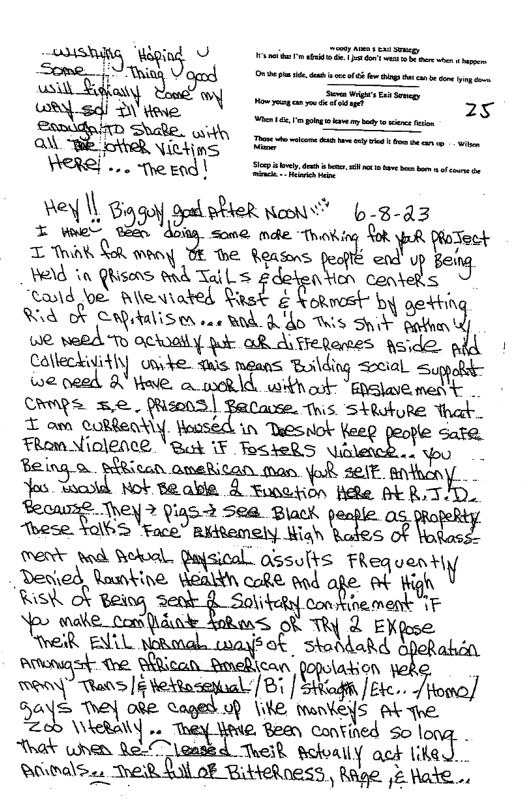 wishing Hoping U
Some Thing good
will finally come my
way so I'll HAVE
enough TO SHARE with
all the other Victims
Here! ... The End!
Woody Allen's Exit Strategy
It's not that I'm afraid to die. I just don't want to be there when it happens
On the plus side, death is one of the few things that can be done lying down
Steven Wright's Exit Strategy
How young can you die of old age?
When I die, I'm going to leave my body to science fiction
Those who welcome death have only tried it from the ears up - - Wilson
Mizner
Sleep is lovely, death is better, still not to have been born is of course the
miracle. - - Heinrich Heine
25
Hey!! Big guy good AFter NooN 6-8-23
I HAVE Been doing some more Thinking for your PROJECT
I Think for many OF the Reasons people end up Being
Held in prisons And Jails & detention centers
could be Alleviated first & formost by getting
Rid of CApitalism... And 2 do This Shit Anthony
we need To actually put our differences Aside And
Collectivitly unite this means Building social Support
we need 2 Have a world without Enslavement
CAMPS I,e. PRISONS! Because This STRuTuRe That
I am currently Housed in Does Not Keep people safe
From Violence But iF Fosters violence.. You
Being a African american man your self Anthony
You would Not Be able 2 Function Here At R.J.D.
Because They → pigs → see Black people as property
These folk's Face Extremely High Rates of HaRass-
ment And Actual physical assults FRequently
Denied Rountine Health caRe And are At High
Risk of Being sent 2 Solitary confinement iF
You make complaint forms OR TRY 2 Expose
Their EVil NoRmal way's of standard operation
Amongst the AfRican AmeRican population Here
many Trans/&HetRosexual/Bi/StRiaght/Etc../Homo/
gays They are caged up like monkeys At the
Zoo literally.. They HAVE Been confined so long
That when Re-leased TheiR Actually act like
Animals.. TheiR full of BitteRness, Rage, & Hate..